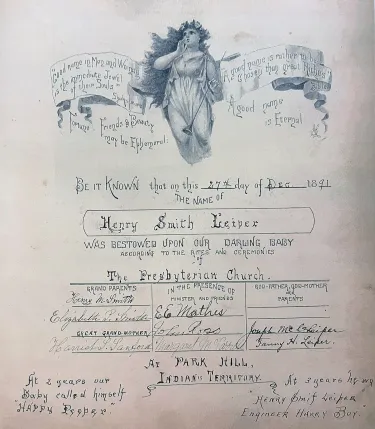 "Good name in Man and Woman
is the immediate jewel
of their Souls"
"A good name is rather to be
chosen than great Riches"
Fortune Friends & Beauty
may be Ephemeral.
A good name
is Eternal
BE IT KNOWN that on this 27th day of DEC. 1891
THE NAME OF
Henry Smith Leiper
WAS BESTOWED UPON OUR DARLING BABY
ACCORDING TO THE RITES AND CEREMONIES
of
The Presbyterian Church.
GRAND PARENTS
IN THE PRESENCE OF
MINISTER AND FRIENDS
GOD-FATHER, GOD-MOTHER
PARENTS
Henry M. Smith
Elizabeth P. Smith
GREAT GRAND-MOTHER
Harriet Sanford
Ross
Joseph Mc Leiper
Fanny H. Leiper.
AT PARK HILL,
INDIAN TERRITORY.
At 2 years our
Baby called himself
"HAPPY PEPPER."
At 3 years
"Henry Smif Leiper
Engineer Harry Boy."